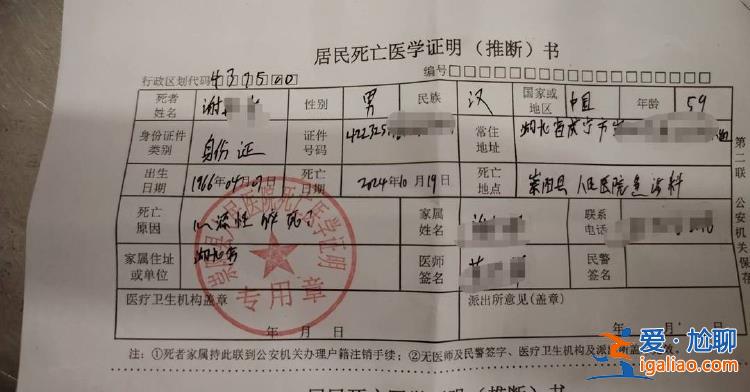 居民死亡医学证明（推断）书
行政区划代码 编号□□□□□□□□□□□□□□□□
死者姓名 谢 性别 男 民族 汉 国家或地区 中国 年龄 59
身份证件类别 身份证 证件号码 422325 常住地址 湖北省咸宁市
出生日期 1966年04月07日 死亡日期 2024年10月19日 死亡地点 崇阳县人民医院急诊科
死亡原因 心源性猝死？ 家属姓名 联系电话
家属住址或单位 医师签名 民警签名
医疗卫生机构盖章 派出所意见（盖章）
年 月 日 年 月 日
崇阳县人民医院死亡医学证明
专用章
第二联 公安机关保存
注：①死者家属持此联到公安机关办理户籍注销手续；②无医师及民警签字、医疗卫生机构及派出所盖章无效。
居民死亡医学证明（推断）书
爱·尬聊